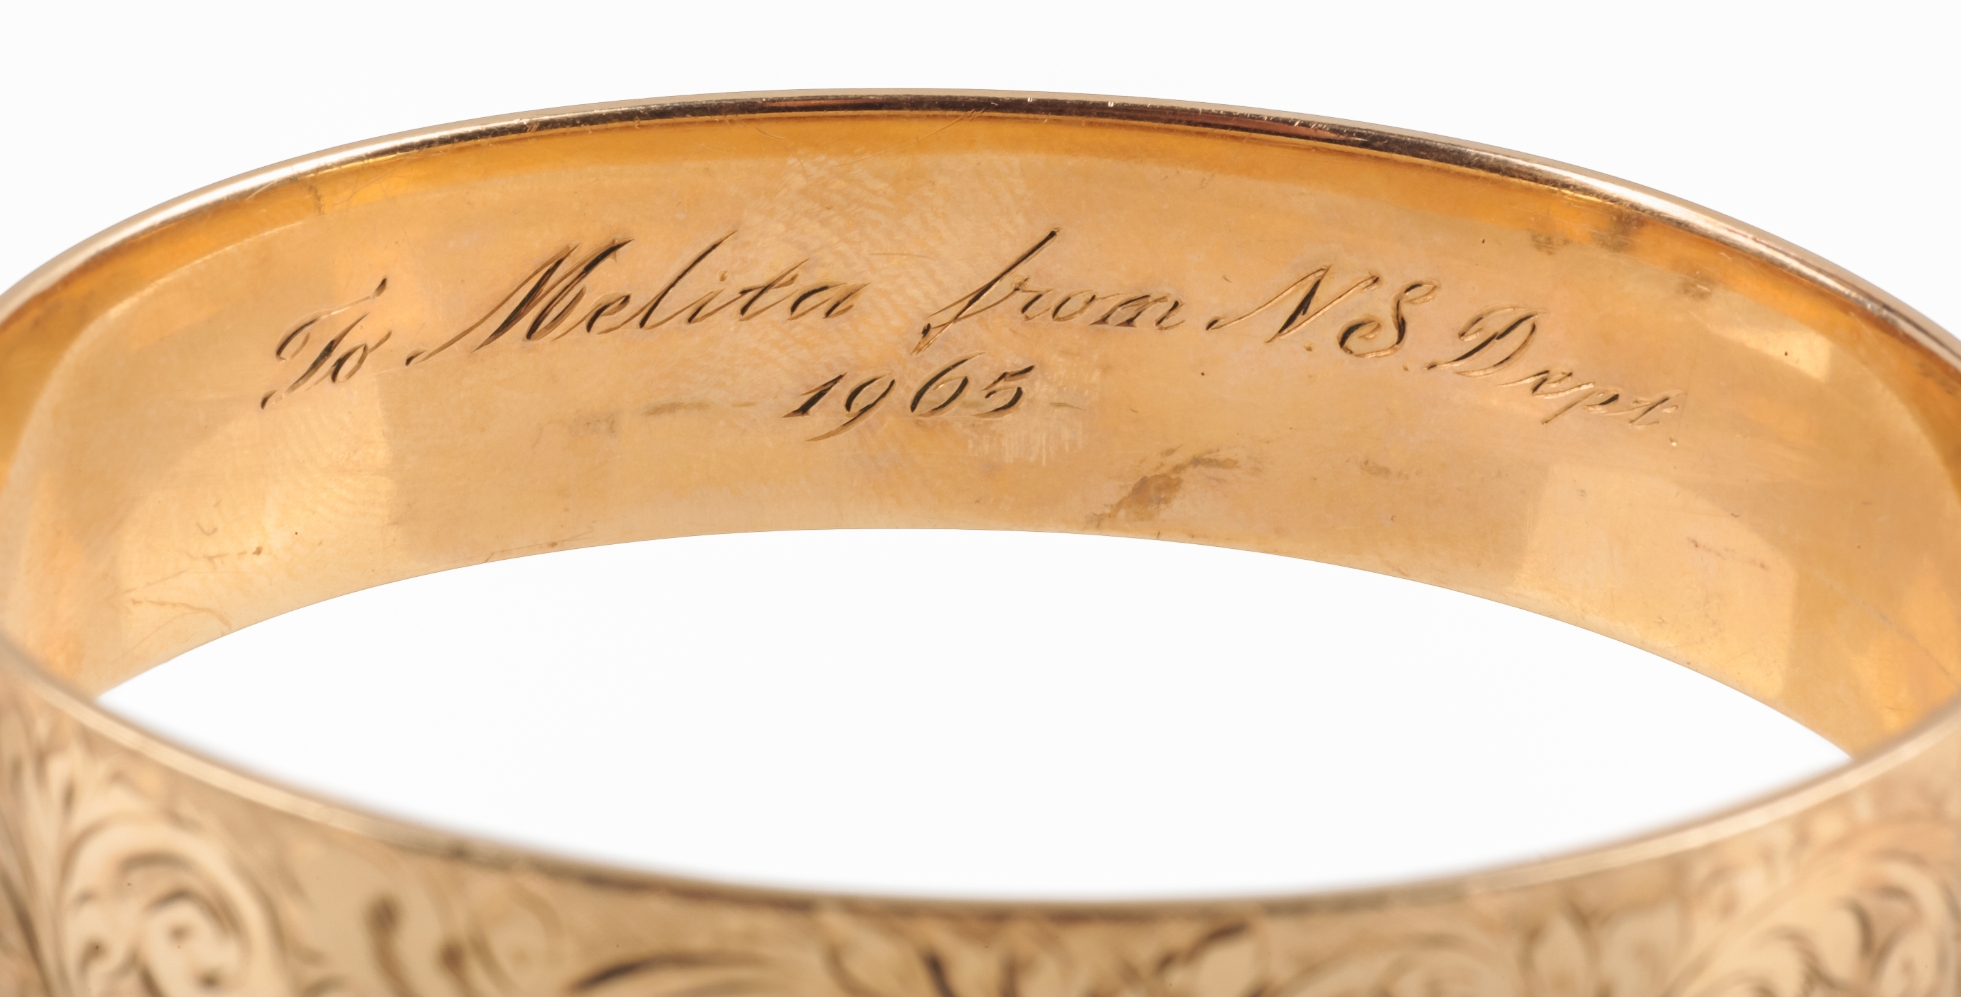 To Melita from N.S. Dept.
1965